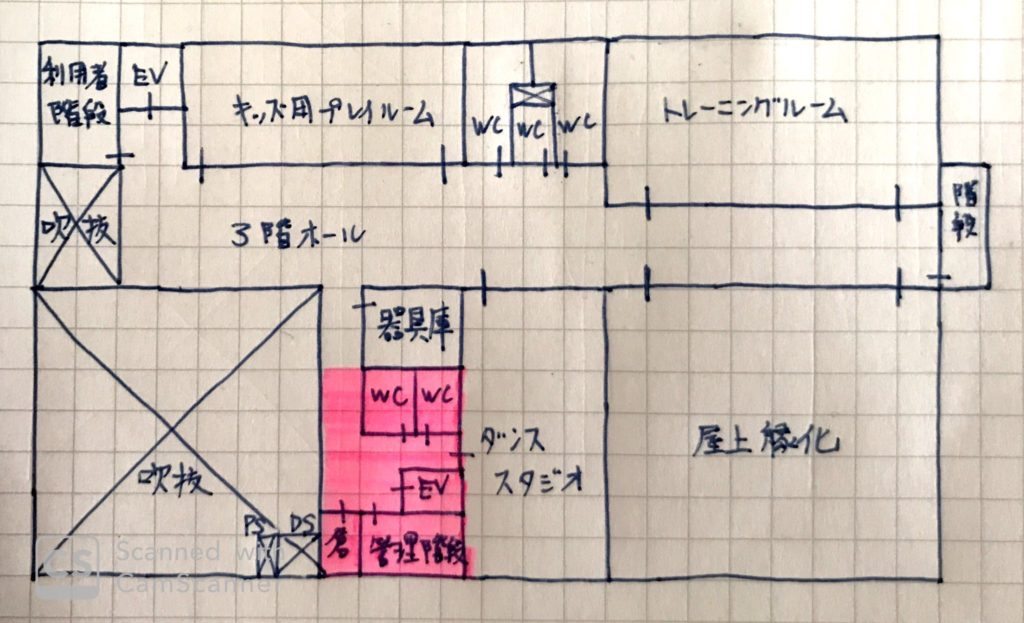 利用者
階段
EV
キッズ用プレイルーム
WC
WC
WC
トレーニングルーム
吹抜
3階ホール
階段
器具庫
WC
WC
ダンス
スタジオ
EV
屋上緑化
吹抜
PS
DS
倉
管理階段
CS
Scanned with
CamScanner